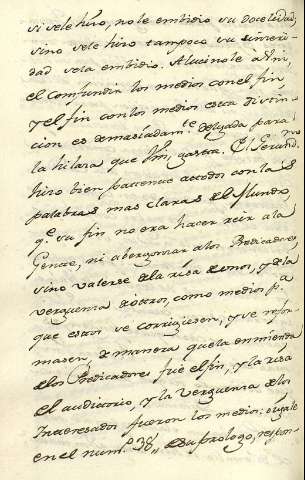 si se le hizo, no le embidio su doceledad,
sino se le hizo tampoco su sinceri-
dad se la embidio. Alucinole à Vm.
el confundir los medios con el fin,
y el fin con los medios esta distin-
cion es demasiadam.te delgada para
la hilaza que Vm. gasta. El Gerund.
hizo bien patente a todos con las
palabras mas claras de el Mundo,
q.e su fin no era hacer reir a la
Gente, ni abergonzar a los Predicadores,
sino valerse de la risa de unos, y de la
verguenza de otros, como medios p.a
que estos se corrigiesen, y se refor-
masen, de manera que la enmienda
de los Predicadores fuè el fin, y la risa
de el auditorio, y la Verguenza de los
Interesados fueron los medios: oigale
en el num.o 38,, de su prologo, respon-